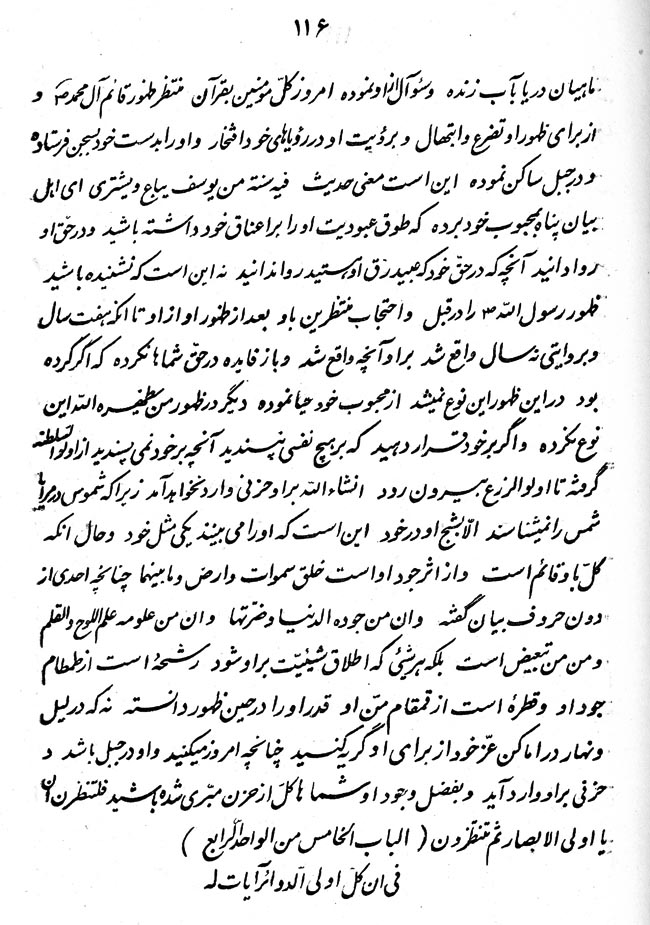 ۱۱۶
ماهیان دریا بآب زنده و سؤال از او نموده امروز کل مؤمنین بقرآن منتظر ظهور قائم آل محمد ص و
از برای ظهور او تضرع و ابتهال و برؤیت او در رؤیاهای خود افتخار و او را بدست خود بسجن فرستاده
و در جبل ساکن نموده این است معنی حدیث فیه سنة من یوسف یباع و یشتری ای اهل
بیان پناه بمحبوب خود برده که طوق عبودیت او را بر اعناق خود داشته باشید و در حق او
روا دانید آنچه که در حق خود که عبید رق او هستید روا ندانید نه این است که نشنیده باشید
ظهور رسول الله ص را در قبل و احتجاب منتظرین باو بعد از ظهور او از او تا آنکه هفت سال
و بروایتی نه سال واقع شد بر او آنچه واقع شد و باز فایده در حق شماها نکرده که اگر کرده
بود در این ظهور این نوع نمیشد از محبوب خود حیا نموده دیگر در ظهور من یظهره الله این
نوع نکرده و اگر بر خود قرار دهید که بر هیچ نفسی نپسندید آنچه بر خود نمی پسندید از اولو السلطنه
گرفته تا اولو الزرع بیرون رود انشاء الله بر او حزنی وارد نخواهد آمد زیرا که شموس در مرایا
شمس را نمیشناسند الا بشبح او در خود این است که او را می بینند یکی مثل خود و حال آنکه
کل باو قائم است و از اثر جود او است خلق سموات و ارض و ما بینهما چنانچه احدی از
دون حروف بیان گفته و ان من جوده الدنیا و ضرتها و ان من علومه علم اللوح و القلم
و من من تبعیض است بلکه هر شیئی که اطلاق شیئیت بر او شود رشحۀ است از طمطام
جود او و قطرۀ است از قمقام من او قدر او را در حین ظهور دانسته نه که در لیل
و نهار در اماکن عز خود از برای او گریه کنید چنانچه امروز میکنید و او در جبل باشد و
حزنی بر او وارد آید و بفضل وجود او شما ها کل از حزن مبری شده باشید فلتنظرن ان
یا اولی الابصار ثم تنظرون ( الباب الخامس من الواحد الرابع )
فی ان کل اولی الدوائر آیات له